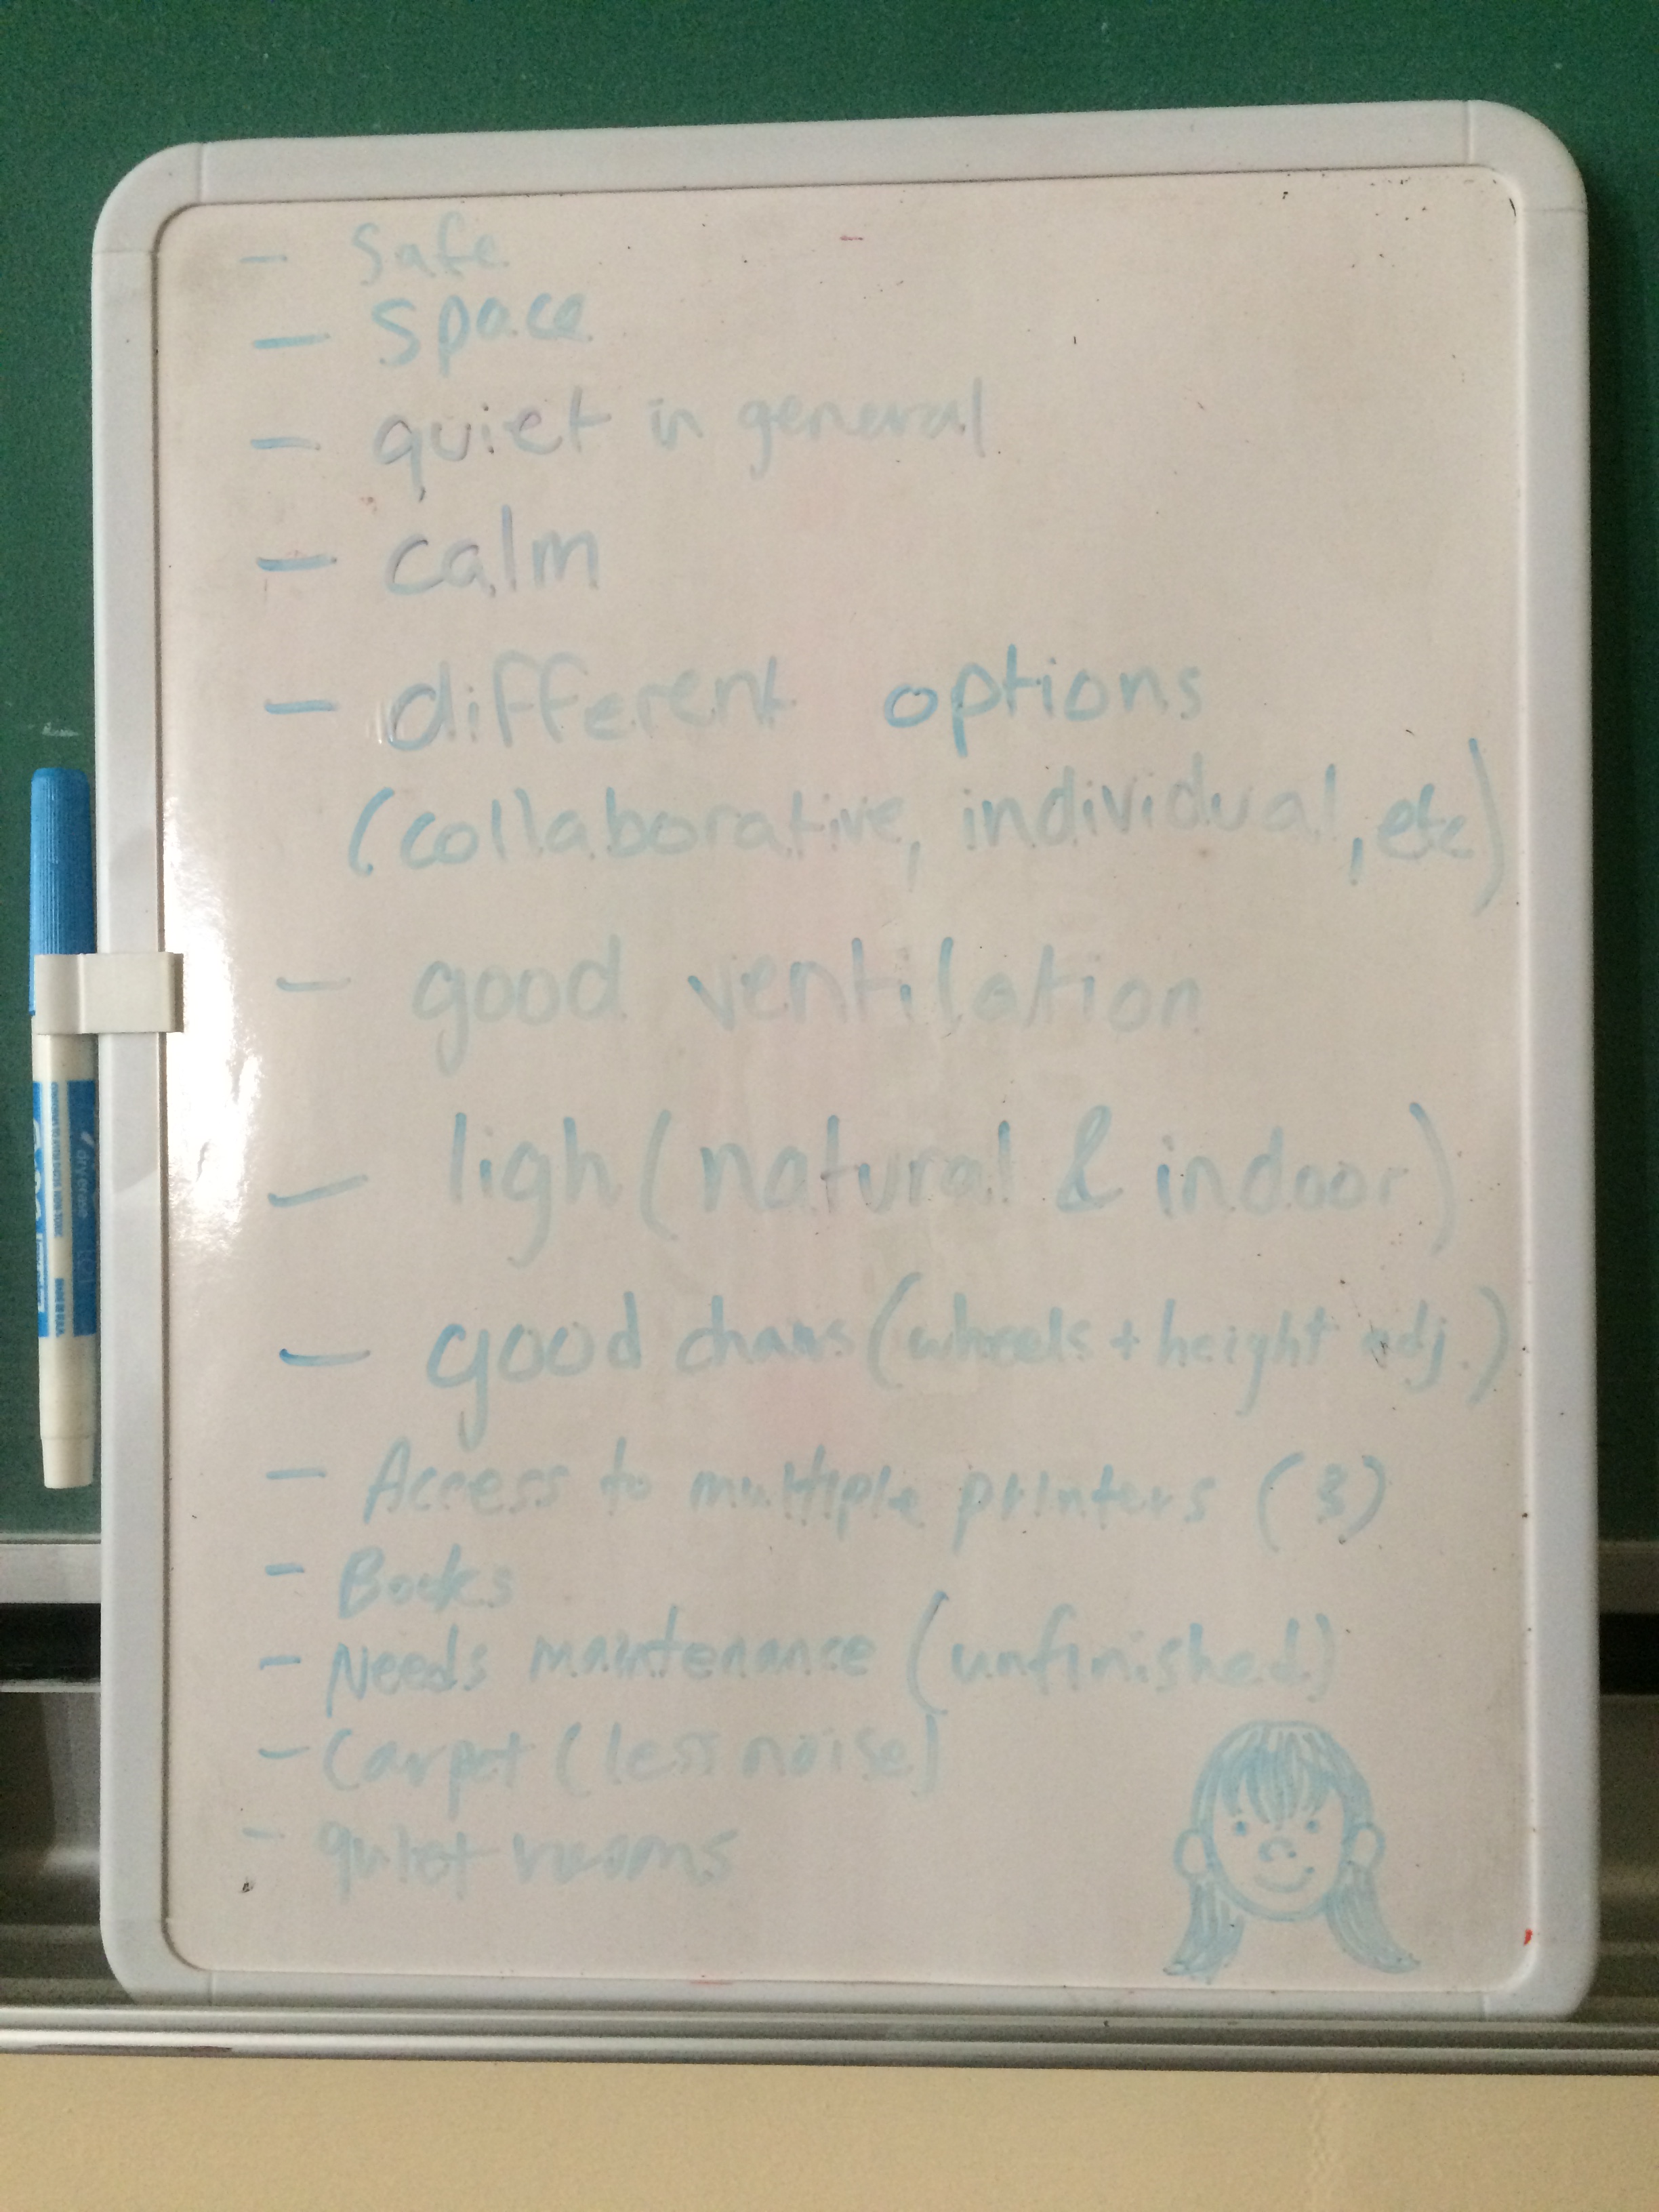 - Safe
- Space
- quiet in general
- calm
- different options
(collaborative, individual, etc)
- good ventilation
- ligh (natural & indoor)
- good chairs (wheels + height adj.)
- Access to multiple printers (3)
- Books
- Needs maintenance (unfinished)
- Carpet (less noise)
- quiet rooms